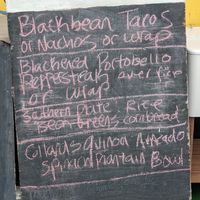 Blackbean Tacos
or Nachos or wrap
Blackened Portobello
Peppasteak over rice
or wrap
Southern Plate: Rice
Bean Greens cornbread
Island Quinoa Avocado
Spinach Plantain Bowl